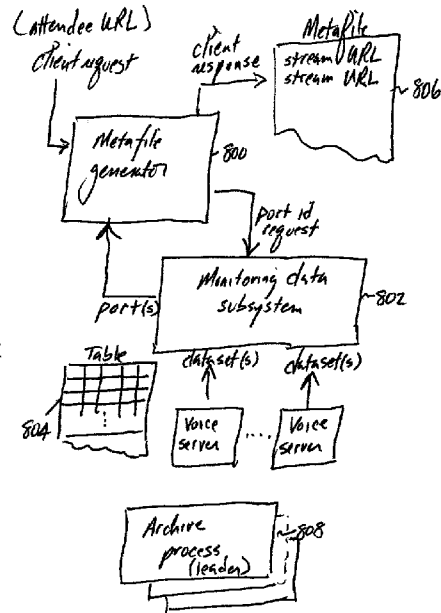 (attendee URL)
client request
client
response
Metafile
stream URL
stream URL
806
Metafile
generator
800
port id
request
port(s)
Monitoring data
subsystem
802
Table
804
dataset(s)
dataset(s)
Voice
server
...
Voice
server
Archive
process
(leader)
808